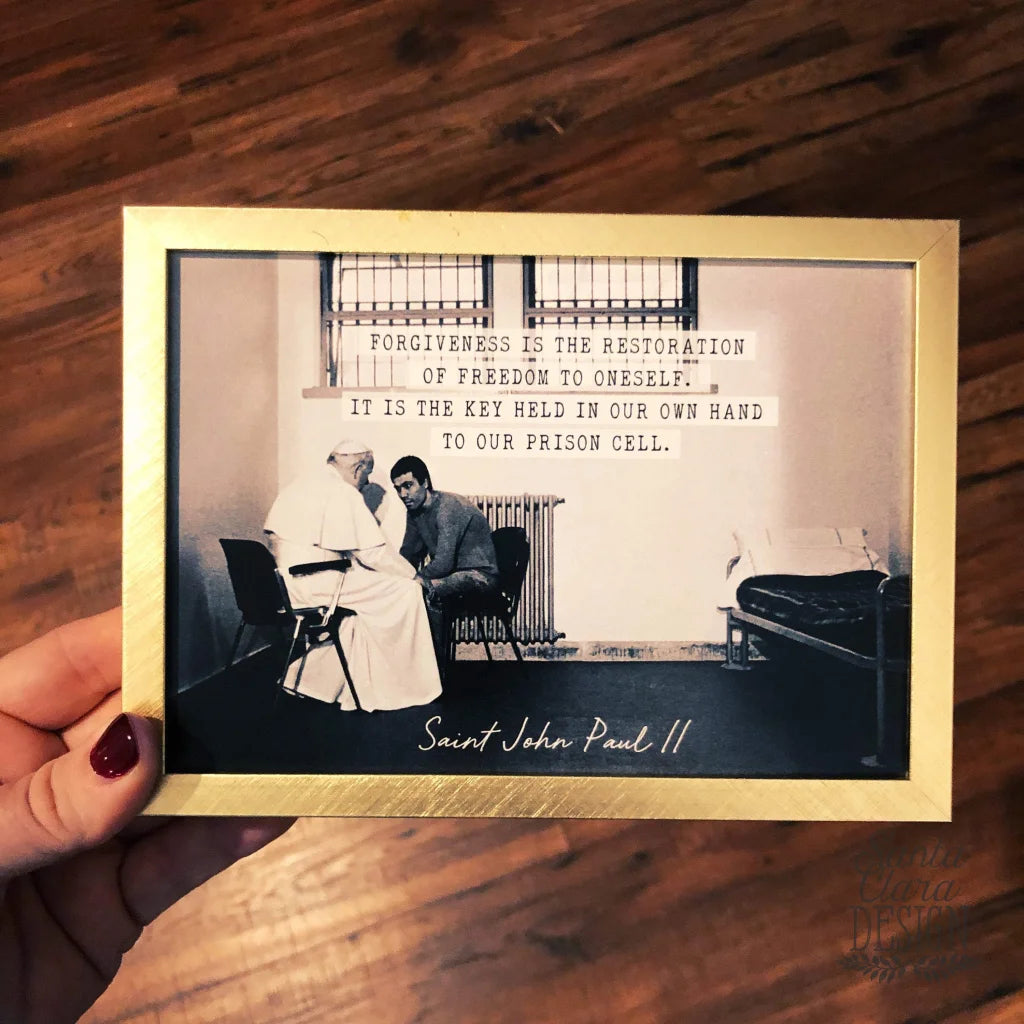 FORGIVENESS IS THE RESTORATION
OF FREEDOM TO ONESELF.
IT IS THE KEY HELD IN OUR OWN HAND
TO OUR PRISON CELL.
Saint John Paul II
Santa
Clara
DESIGN